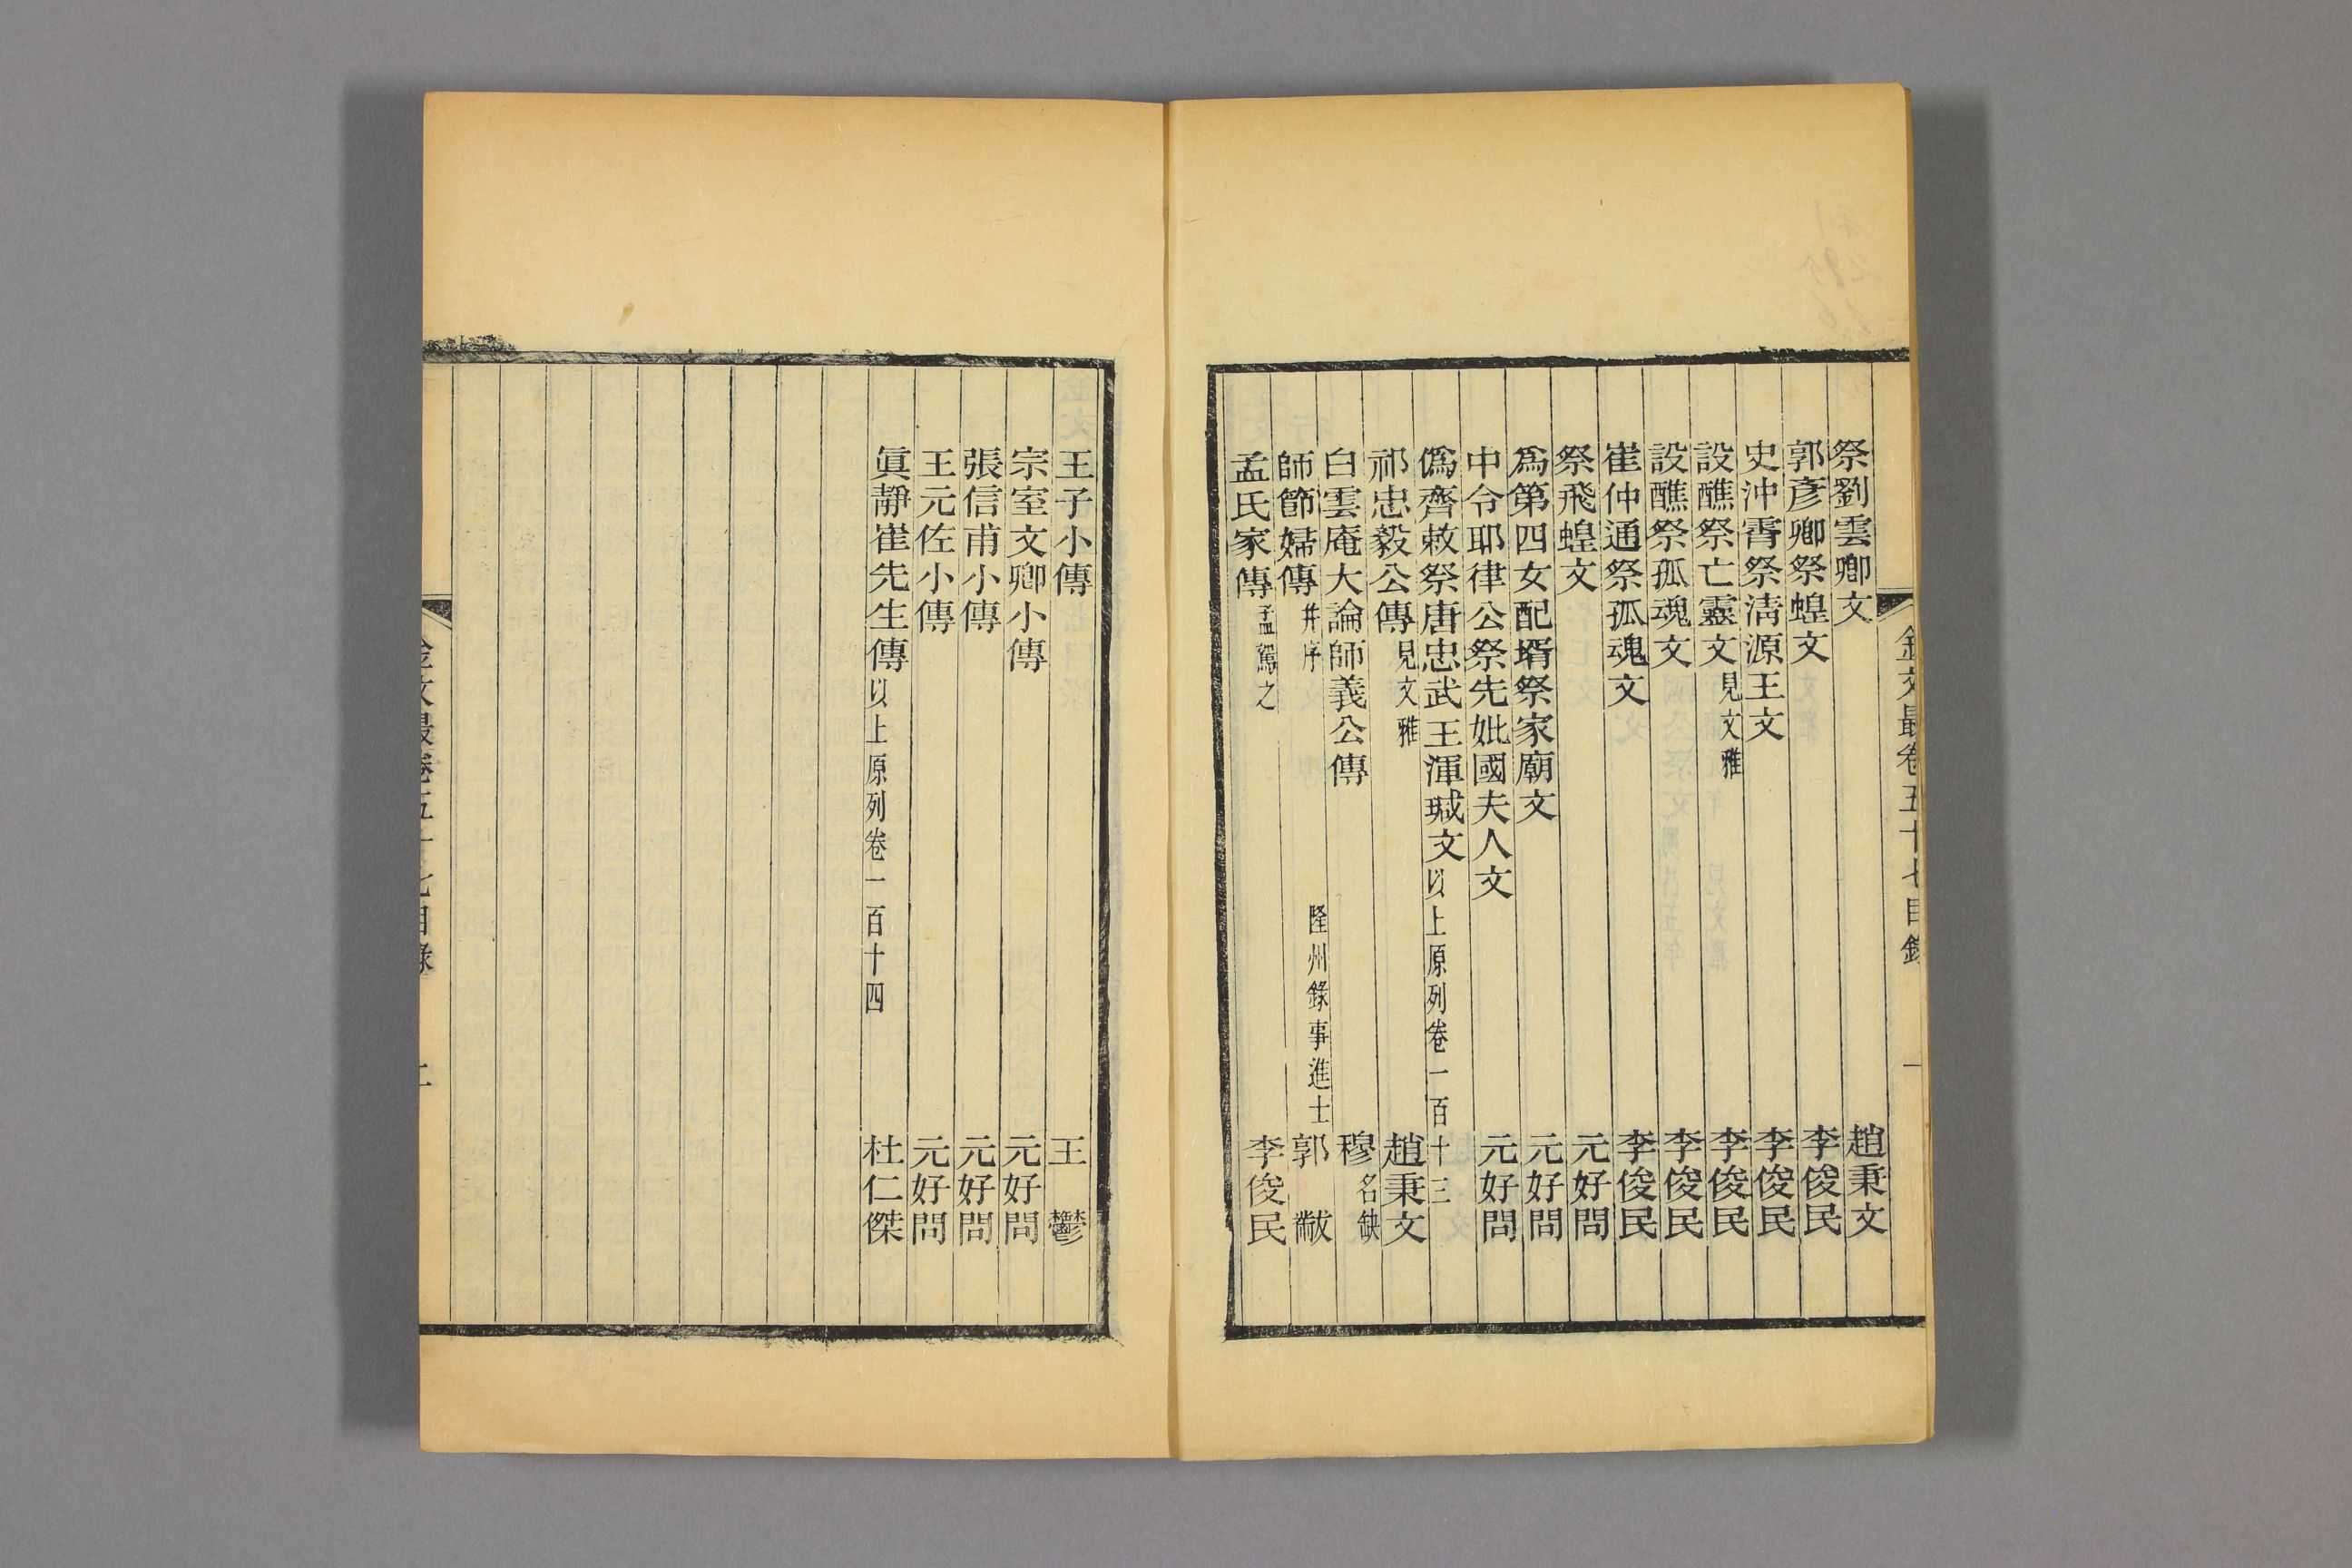 金文最卷五十七目錄 一
祭劉雲卿文 趙秉文
郭彥卿祭蝗文 李俊民
史沖霄祭淸源王文 李俊民
設醮祭亡靈文見文雅 李俊民
設醮祭孤魂文 李俊民
崔仲通祭孤魂文 李俊民
祭飛蝗文 元好問
爲第四女配壻祭家廟文 元好問
中令耶律公祭先妣國夫人文 元好問
僞齊敕祭唐忠武王渾瑊文以上原列卷一百十三
祁忠毅公傳見文雅 趙秉文
白雲庵大論師義公傳 穆名缺
師節婦傳幷序 隆州錄事進士郭黻
孟氏家傳孟駕之 李俊民
王子小傳 王鬱
宗室文卿小傳 元好問
張信甫小傳 元好問
王元佐小傳 元好問
眞靜崔先生傳以上原列卷一百十四 杜仁傑
金文最卷五十七目錄 二